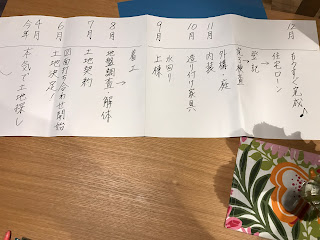 今年
4月
本気で土地探し
6月
土地決定!
図面打ち合わせ開始
7月
土地契約
8月
地盤調査・解体
→
着工
9月
上棟
水回り
10月
造り付け家具
11月
内装
外構・庭
12月
完了検査
→
登記
→
住宅ローン
もうすぐ完成♪